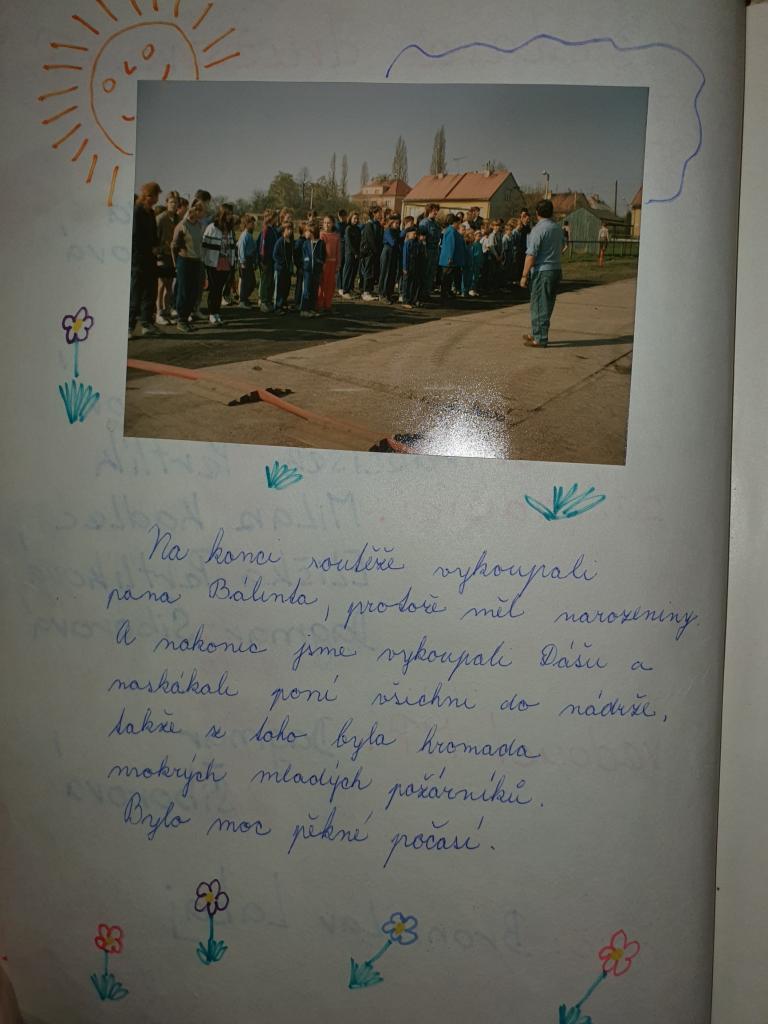 Na konci soutěže vykoupali
pana Bálinta, protože měl narozeniny.
A nakonec jsme vykoupali Dášu a
naskákali poní všichni do nádrže,
takže z toho byla hromada
mokrých mladých požárníků.
Bylo moc pěkné počasí.